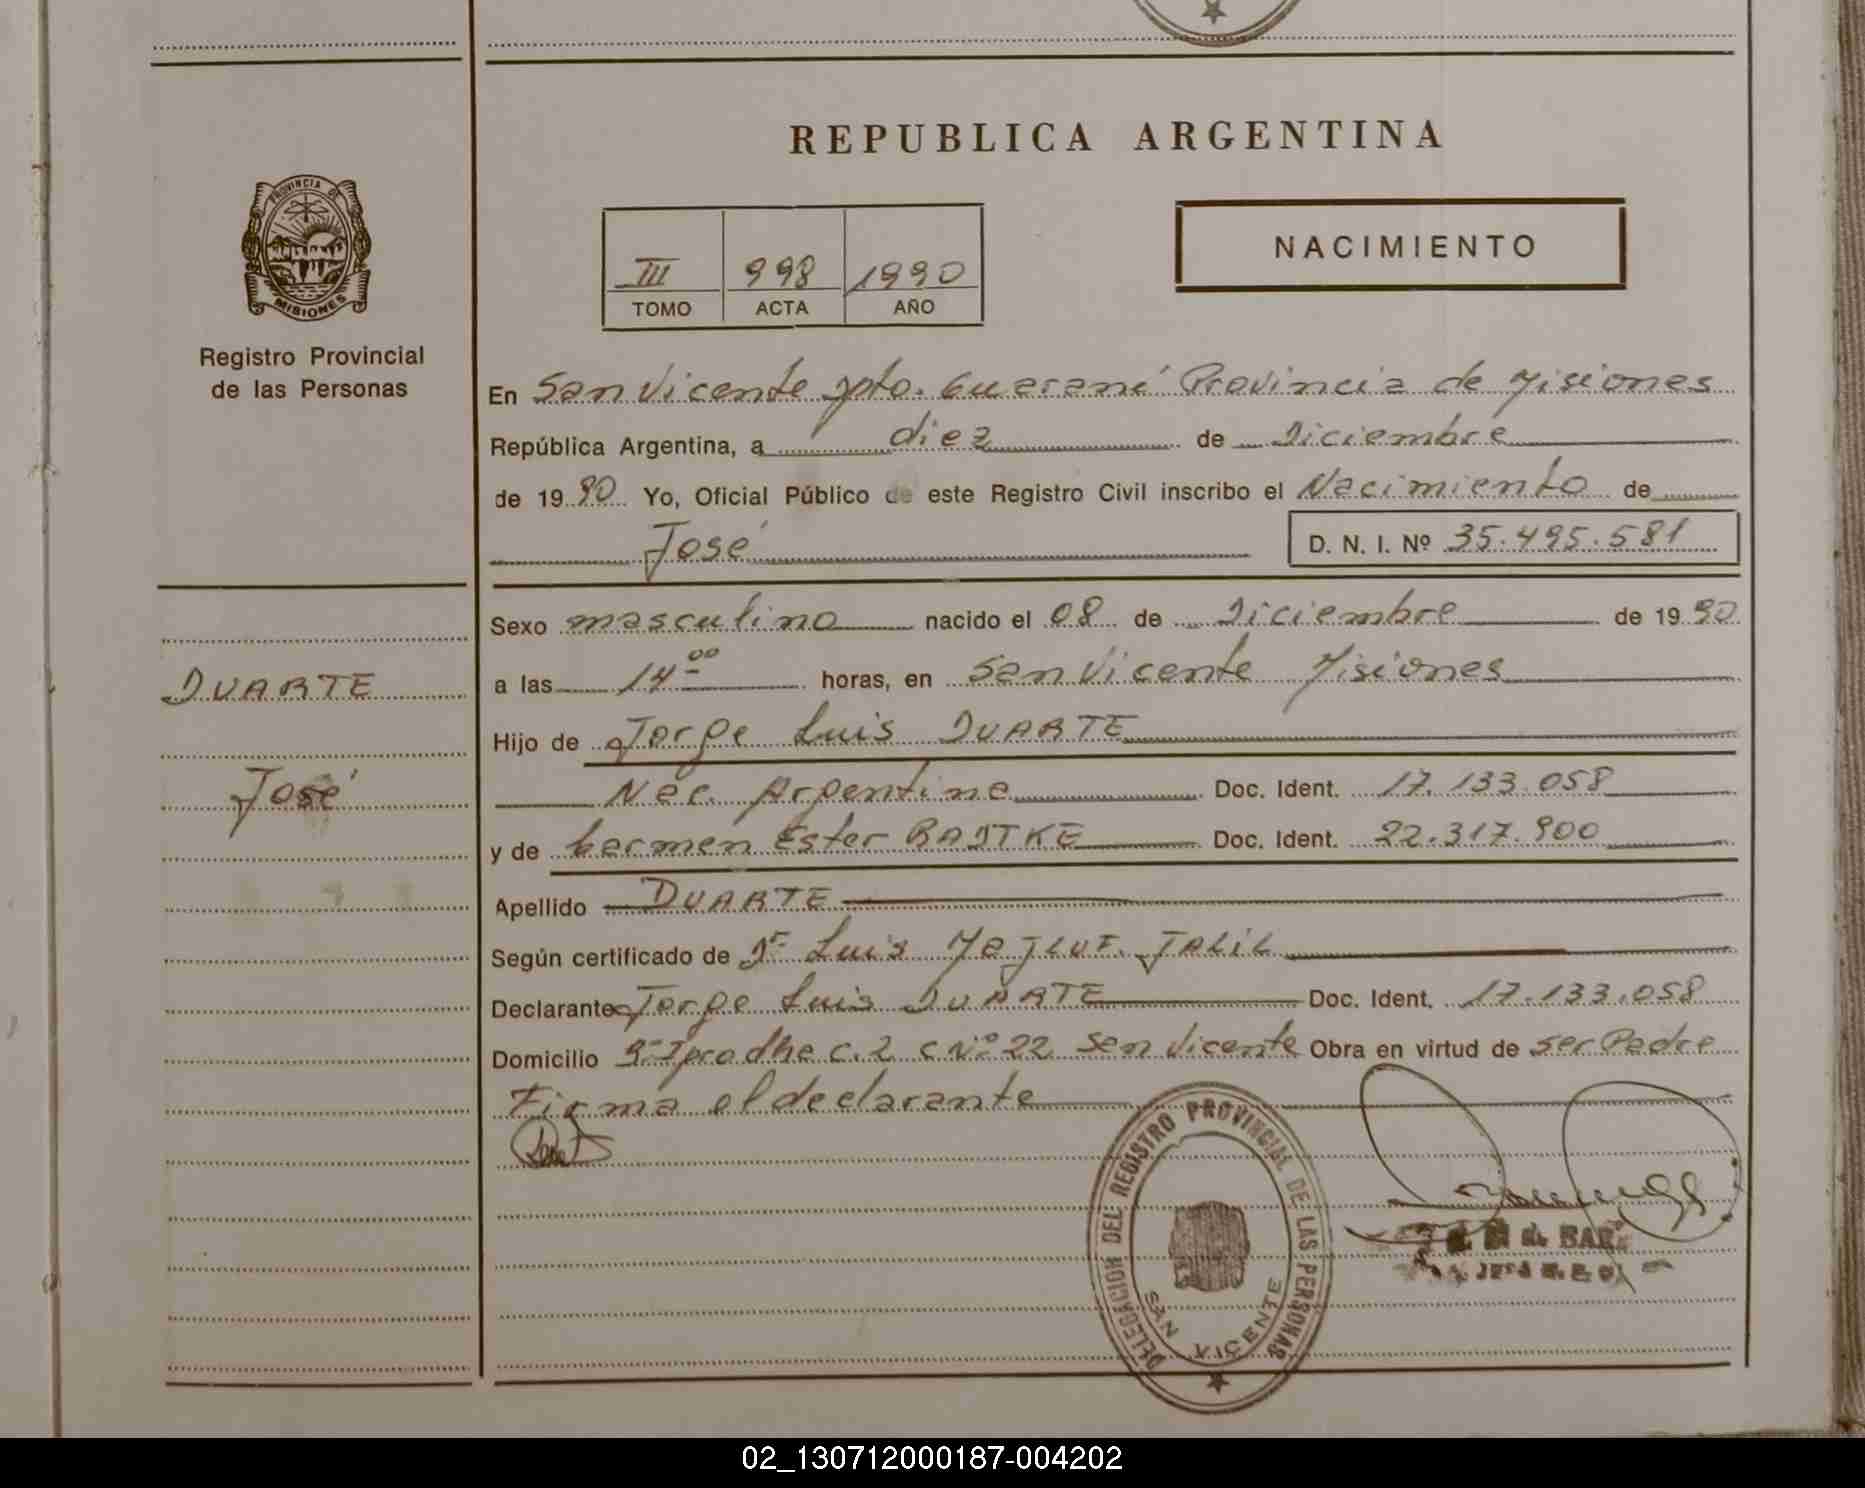 REPUBLICA ARGENTINA
PROVINCIA DE
MISIONES
Registro Provincial
de las Personas
III 998 1990
TOMO ACTA AÑO
NACIMIENTO
En San Vicente Dpto. Guaraní Provincia de Misiones
República Argentina, a diez de Diciembre
de 1990 Yo, Oficial Público de este Registro Civil inscribo el Nacimiento de
José D. N. I. Nº 35.495.581
Sexo masculino nacido el 08 de Diciembre de 1990
DUARTE
a las 14 00 horas, en San Vicente Misiones
Hijo de Jorge Luis DUARTE
José
Nac. Argentina Doc. Ident. 17.133.058
y de Carmen Ester Doc. Ident. 22.317.900
Apellido DUARTE
Según certificado de Dr Luis
Declarante Jorge Luis DUARTE Doc. Ident. 17.133.058
Domicilio C.2 C Nº 22 San Vicente Obra en virtud de ser Padre
Firma el declarante
DELEGACION DEL REGISTRO PROVINCIAL DE LAS PERSONAS
SAN VICENTE
02_130712000187-004202